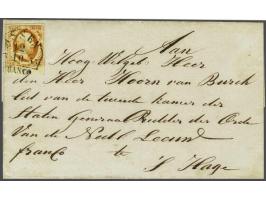 Aan
Hoog Welgeb. Heer
den Heer Hoorn van Burck
lid van de tweede kamer der
Staten Generaal Ridder der Orde
Van de Nedl Leeuw
franco te
S Hage
FRANCO